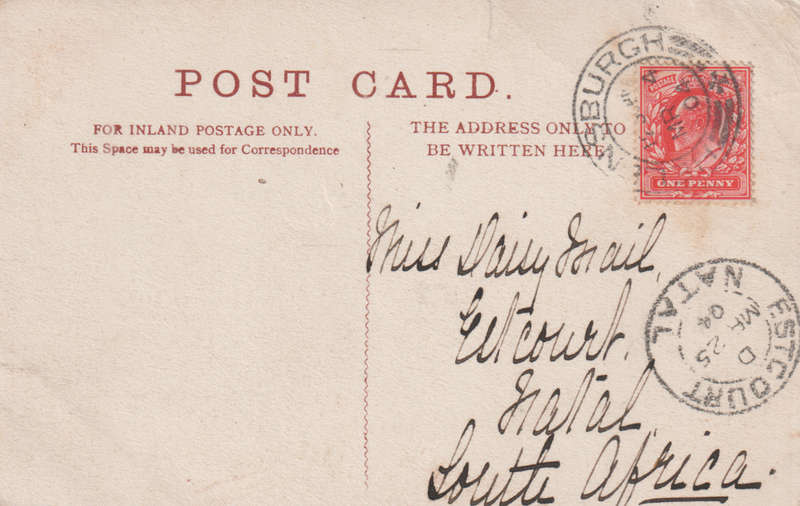 POST CARD.
FOR INLAND POSTAGE ONLY.
This Space may be used for Correspondence
THE ADDRESS ONLY TO
BE WRITTEN HERE
POSTAGE
ONE PENNY
BURGH
MR
04
ESTCOURT
NATAL
D
MR 25
04
Miss Daisy
Estcourt.
Natal
South Africa.